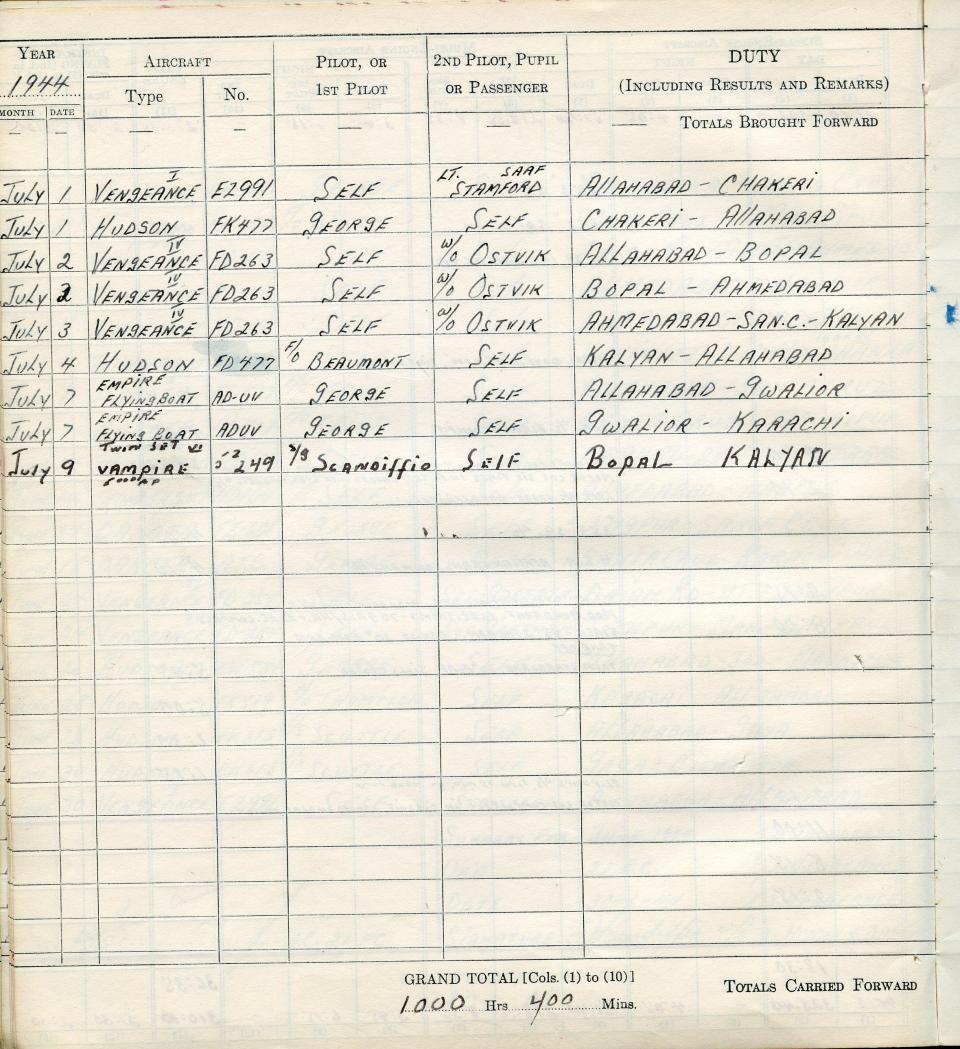 YEAR AIRCRAFT PILOT, OR 2ND PILOT, PUPIL DUTY
1944 Type No. 1ST PILOT OR PASSENGER (INCLUDING RESULTS AND REMARKS)
MONTH DATE
— — — — — — — TOTALS BROUGHT FORWARD
July 1 VENGEANCE I E2991 SELF LT. STAMFORD SAAF ALLAHABAD - CHAKERI
July 1 HUDSON FK477 GEORGE SELF CHAKERI - ALLAHABAD
July 2 VENGEANCE IV FD263 SELF W/O OSTVIK ALLAHABAD - BOPAL
July 2 VENGEANCE IV FD263 SELF W/O OSTVIK BOPAL - AHMEDABAD
July 3 VENGEANCE IV FD263 SELF W/O OSTVIK AHMEDABAD - SAN.C. - KALYAN
July 4 HUDSON FD477 F/O BEAUMONT SELF KALYAN - ALLAHABAD
July 7 EMPIRE FLYING BOAT AD-UV GEORGE SELF ALLAHABAD - GWALIOR
July 7 EMPIRE FLYING BOAT ADUV GEORGE SELF GWALIOR - KARACHI
July 9 TWIN VAMPIRE 249 SCANDIFFIO SELF BOPAL KALYAN
GRAND TOTAL [Cols. (1) to (10)] TOTALS CARRIED FORWARD
1000 Hrs 400 Mins.